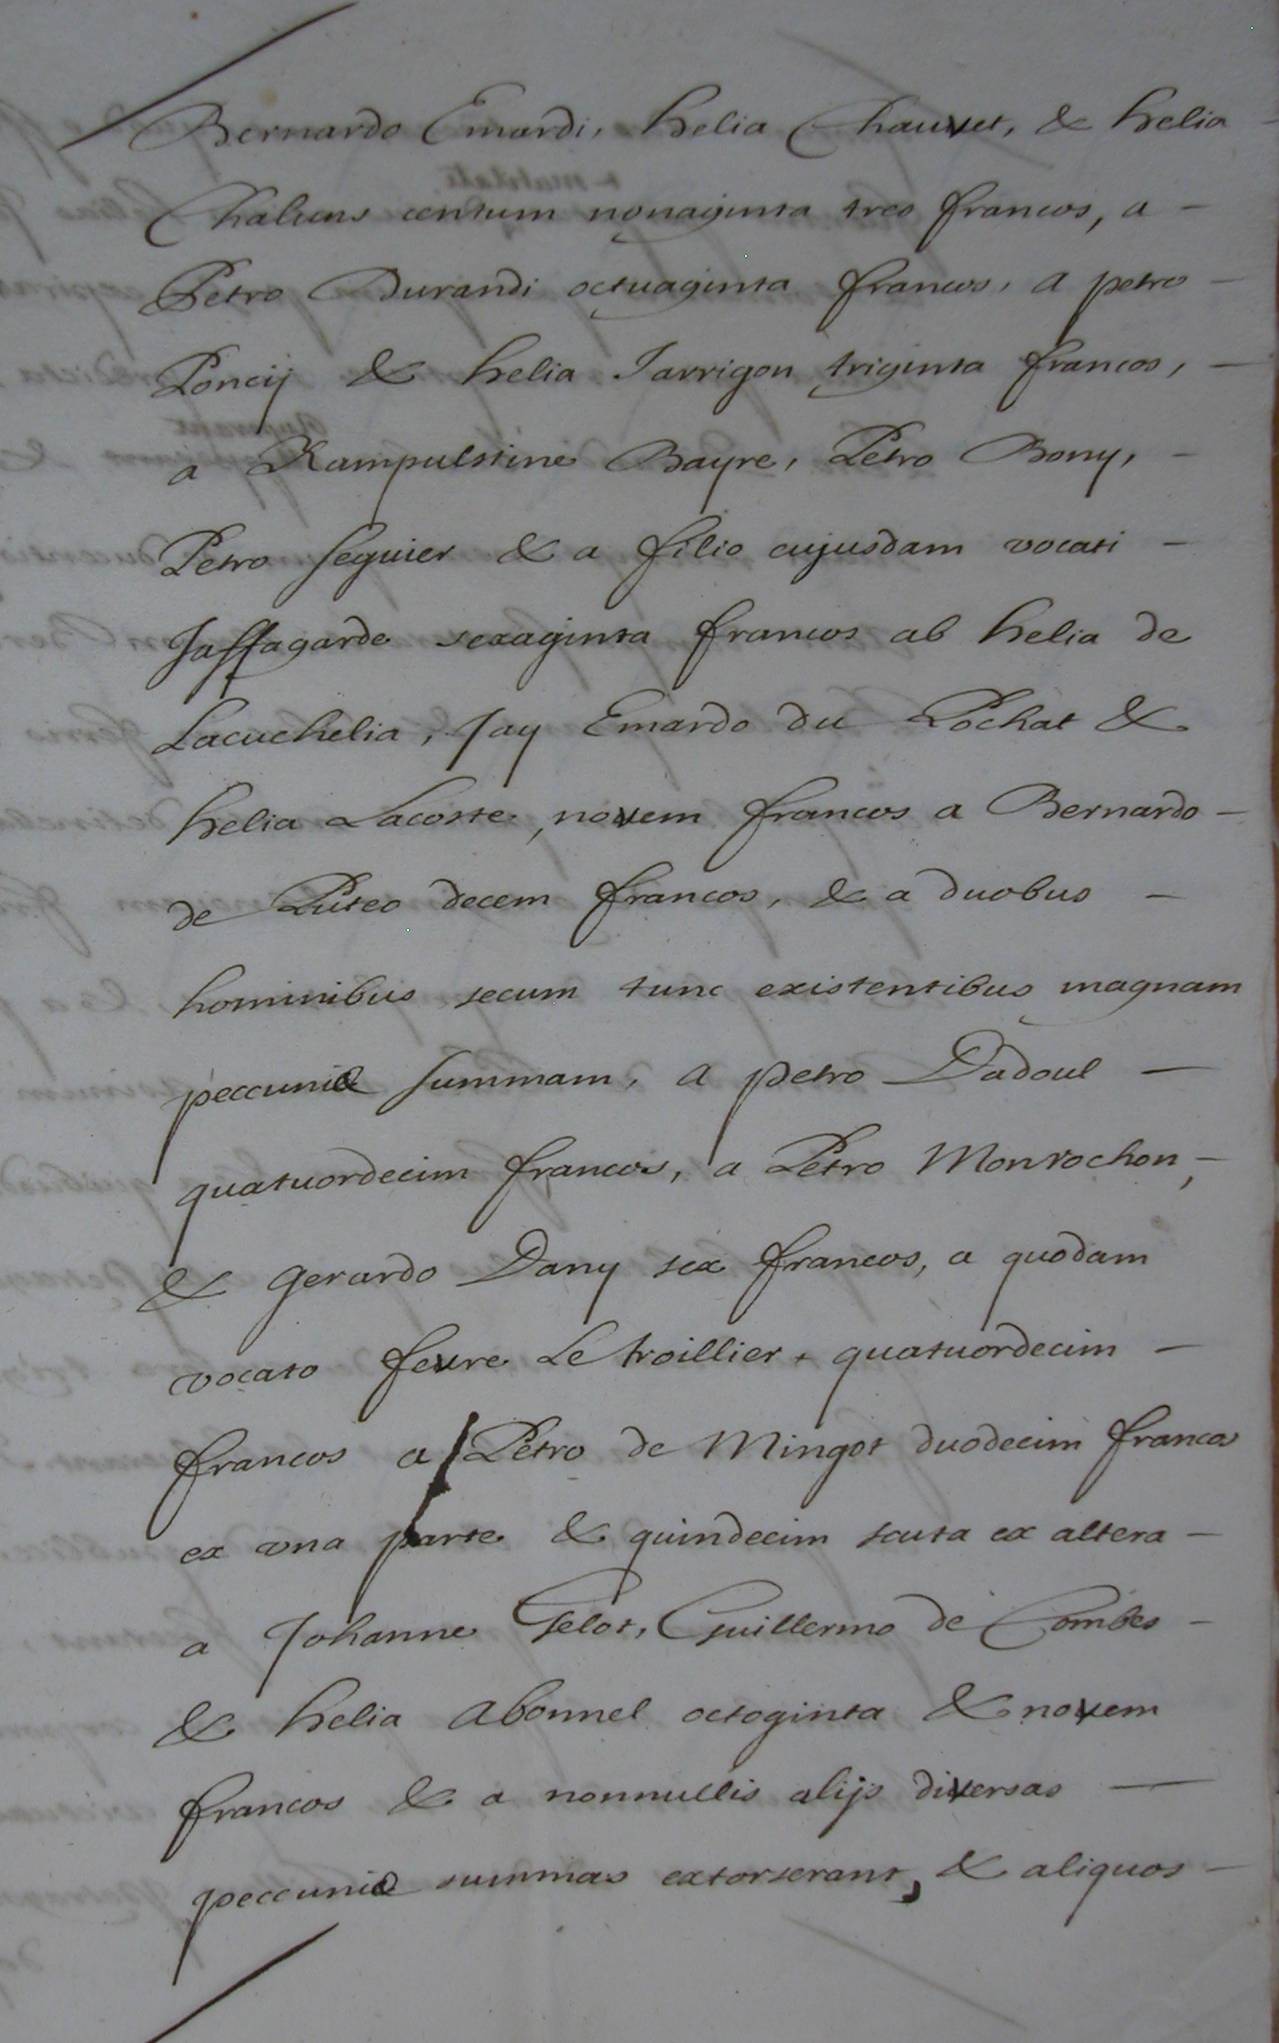 Bernardo Emardi, helia Chauvet, & helia
Chalucus centum nonaginta tres francos, a -
Petro Durandi octuaginta francos, a petro -
Poncij & helia Jarrigon triginta francos, -
a Rampulstine Bayre, Petro Bony, -
Petro seguier & a filio cujusdam vocati -
Jaffagarde sexaginta francos ab helia de
Lacuchelia, Jay Emardo du Pochat &
helia Lacoste, novem francos a Bernardo -
de Puteo decem francos, & a duobus -
hominibus secum tunc existentibus magnam
peccuniæ summam, a petro Dadoul -
quatuordecim francos, a Petro Monrochon, -
& Gerardo Dany sex francos, a quodam
vocato fevre Le troillier + quatuordecim -
francos a Petro de Mingot duodecim francos
ex una parte & quindecim scuta ex altera -
a Johanne Gelot, Guillermo de Combes -
& helia Abonnel octoginta & novem
francos & a nonnullis alijs diversas -
peccuniæ summas extorserant, & aliquos -